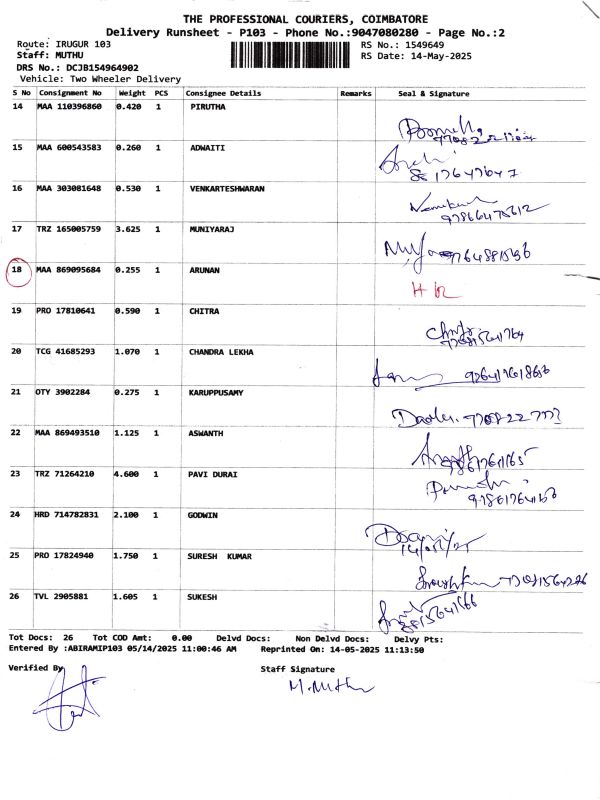 THE PROFESSIONAL COURIERS, COIMBATORE
Delivery Runsheet - P103 - Phone No.:9047080280 - Page No.:2
Route: IRUGUR 103 RS No.: 1549649
Staff: MUTHU RS Date: 14-May-2025
DRS No.: DCJB154964902
Vehicle: Two Wheeler Delivery
S No Consignment No Weight PCS Consignee Details Remarks Seal & Signature
14 MAA 110396860 0.420 1 PIRUTHA
15 MAA 600543583 0.260 1 ADWAITI
16 MAA 303081648 0.530 1 VENKARTESHWARAN
17 TRZ 165005759 3.625 1 MUNIYARAJ
18 MAA 869095684 0.255 1 ARUNAN
19 PRO 17810641 0.590 1 CHITRA
20 TCG 41685293 1.070 1 CHANDRA LEKHA
21 OTY 3902284 0.275 1 KARUPPUSAMY
22 MAA 869493510 1.125 1 ASWANTH
23 TRZ 71264210 4.600 1 PAVI DURAI
24 HRD 714782831 2.100 1 GODWIN
25 PRO 17824940 1.750 1 SURESH KUMAR
26 TVL 2905881 1.605 1 SUKESH
Tot Docs: 26 Tot COD Amt: 0.00 Delvd Docs: Non Delvd Docs: Delvy Pts:
Entered By :ABIRAMIP103 05/14/2025 11:00:46 AM Reprinted On: 14-05-2025 11:13:50
Verified By Staff Signature
M.Muthu